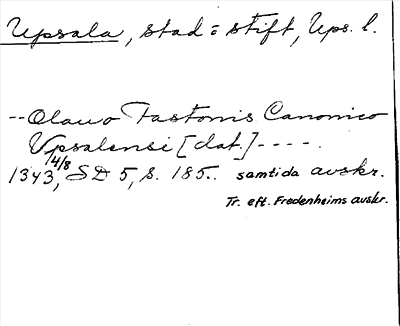 Upsala, stad o stift, Ups. l.
-- Olauo Fastonis Canonico
Vpsalensi [dat.] - - - -.
14/8
1343, SD 5, s. 185.. samtida avskr.
Tr. eft. Fredenheims avskr.